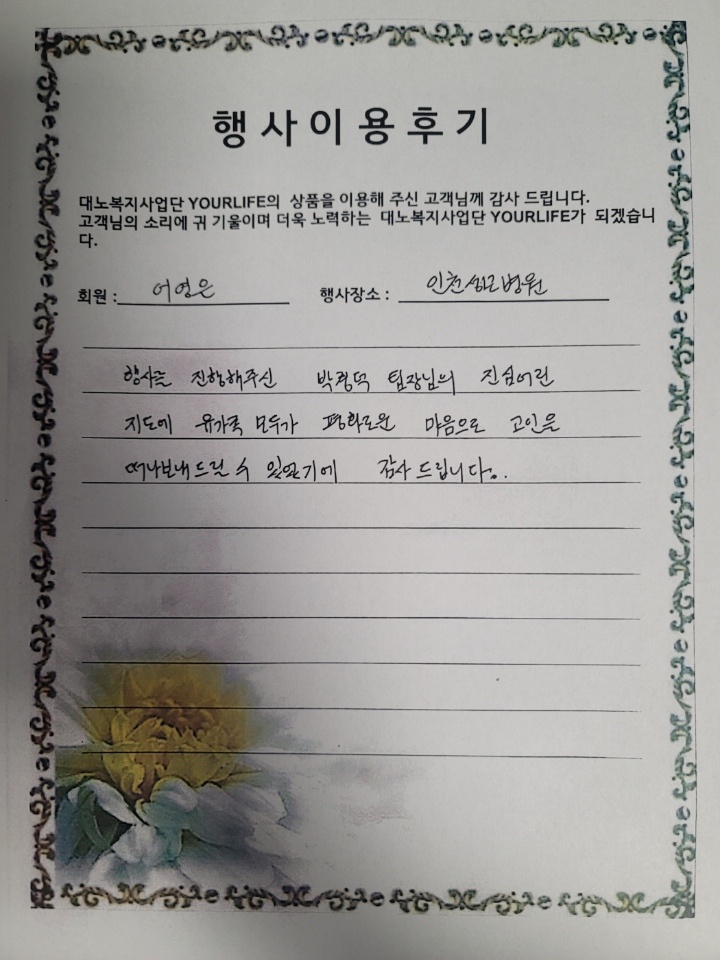 행사이용후기
대노복지사업단 YOURLIFE의 상품을 이용해 주신 고객님께 감사 드립니다.
고객님의 소리에 귀 기울이며 더욱 노력하는 대노복지사업단 YOURLIFE가 되겠습니
다.
회원 : 어영은 행사장소 : 인천시민병원
행사를 진행해주신 박정덕 팀장님의 진심어린
지도에 유가족 모두가 평화로운 마음으로 고인을
떠나보내드릴 수 있었기에 감사드립니다..